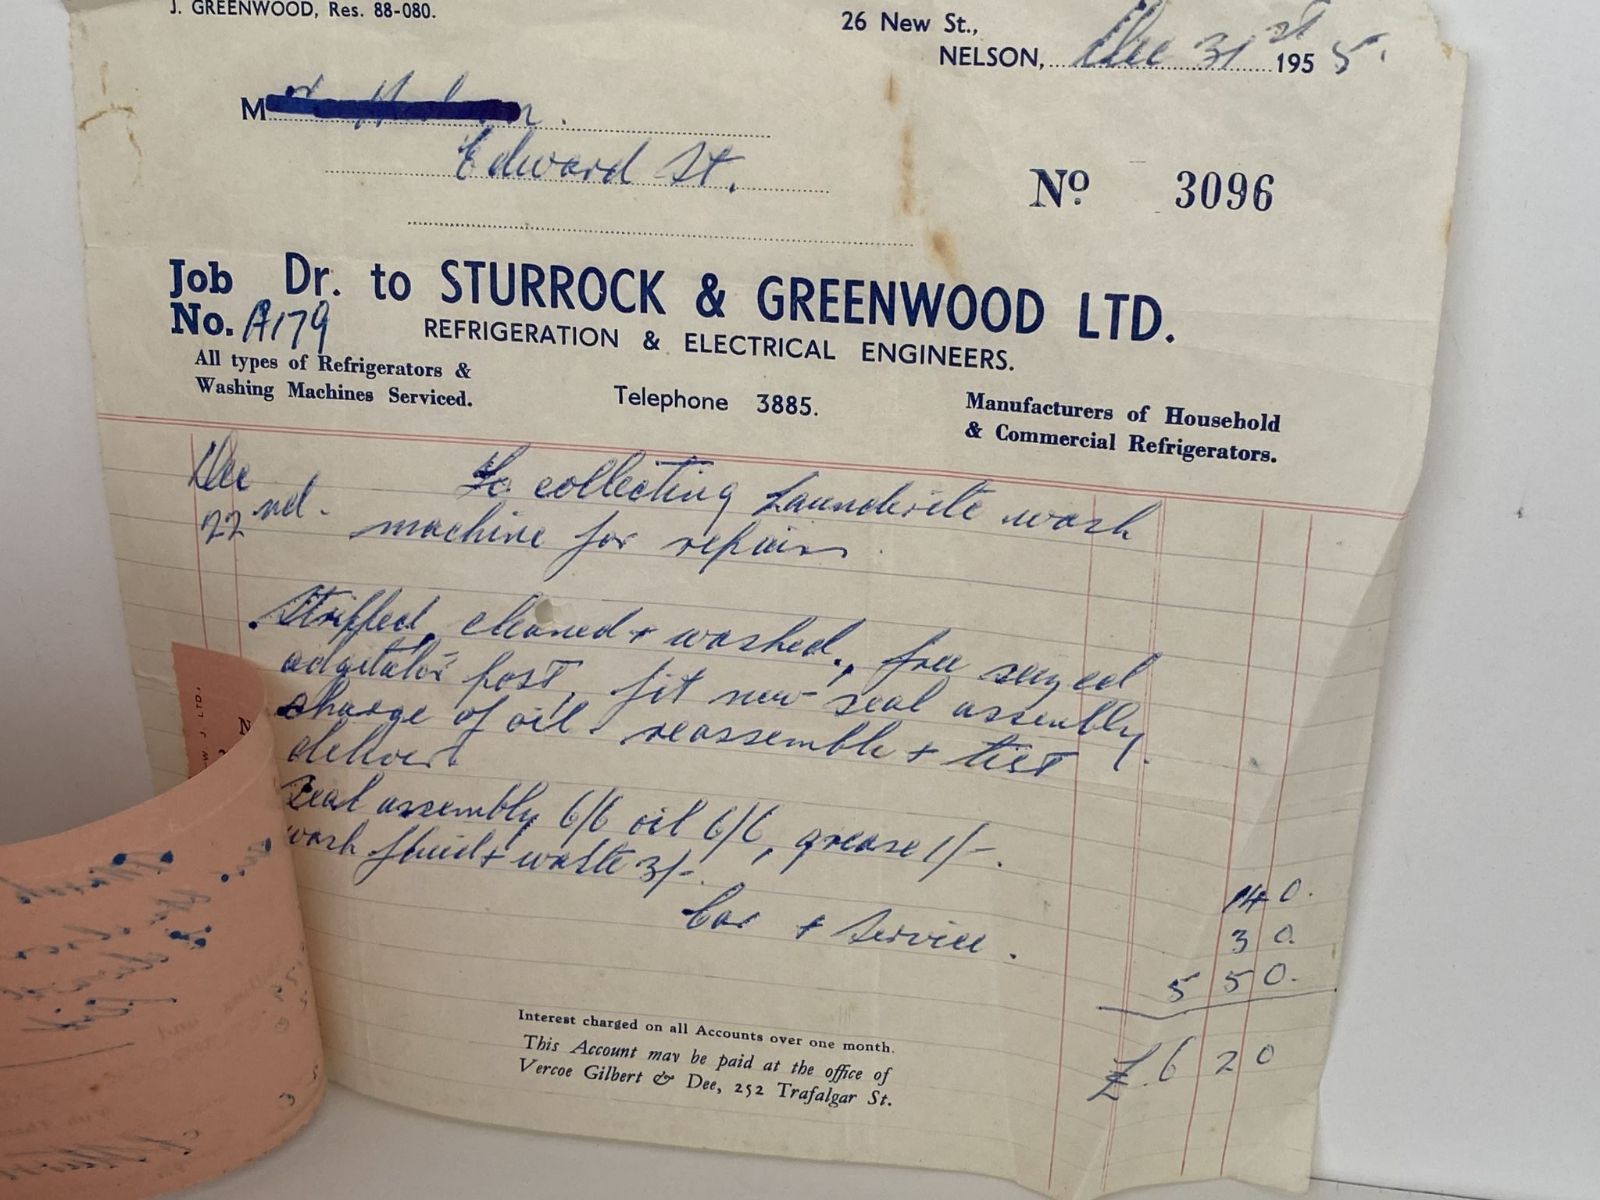 J. GREENWOOD, Res. 88-080.
26 New St.,
NELSON, Dec 31st 1955.
M
Edward St.
No. 3096
Job No. A179
Dr. to STURROCK & GREENWOOD LTD.
REFRIGERATION & ELECTRICAL ENGINEERS.
All types of Refrigerators &
Washing Machines Serviced.
Telephone 3885.
Manufacturers of Household
& Commercial Refrigerators.
Dec 22nd. To collecting Laundrite wash
machine for repairs
Stripped, cleaned + washed, free seyzed
adgitator post, fit new seal assembly
charge of oil, reassemble + test
deliver.
Seal assembly 6/6 oil 6/6, grease 1/-.
wash fluid + waste 3/-.
14 0.
Car + Service. 3 0.
5 5 0.
£6 2 0
Interest charged on all Accounts over one month.
This Account may be paid at the office of
Vercoe Gilbert & Dee, 252 Trafalgar St.